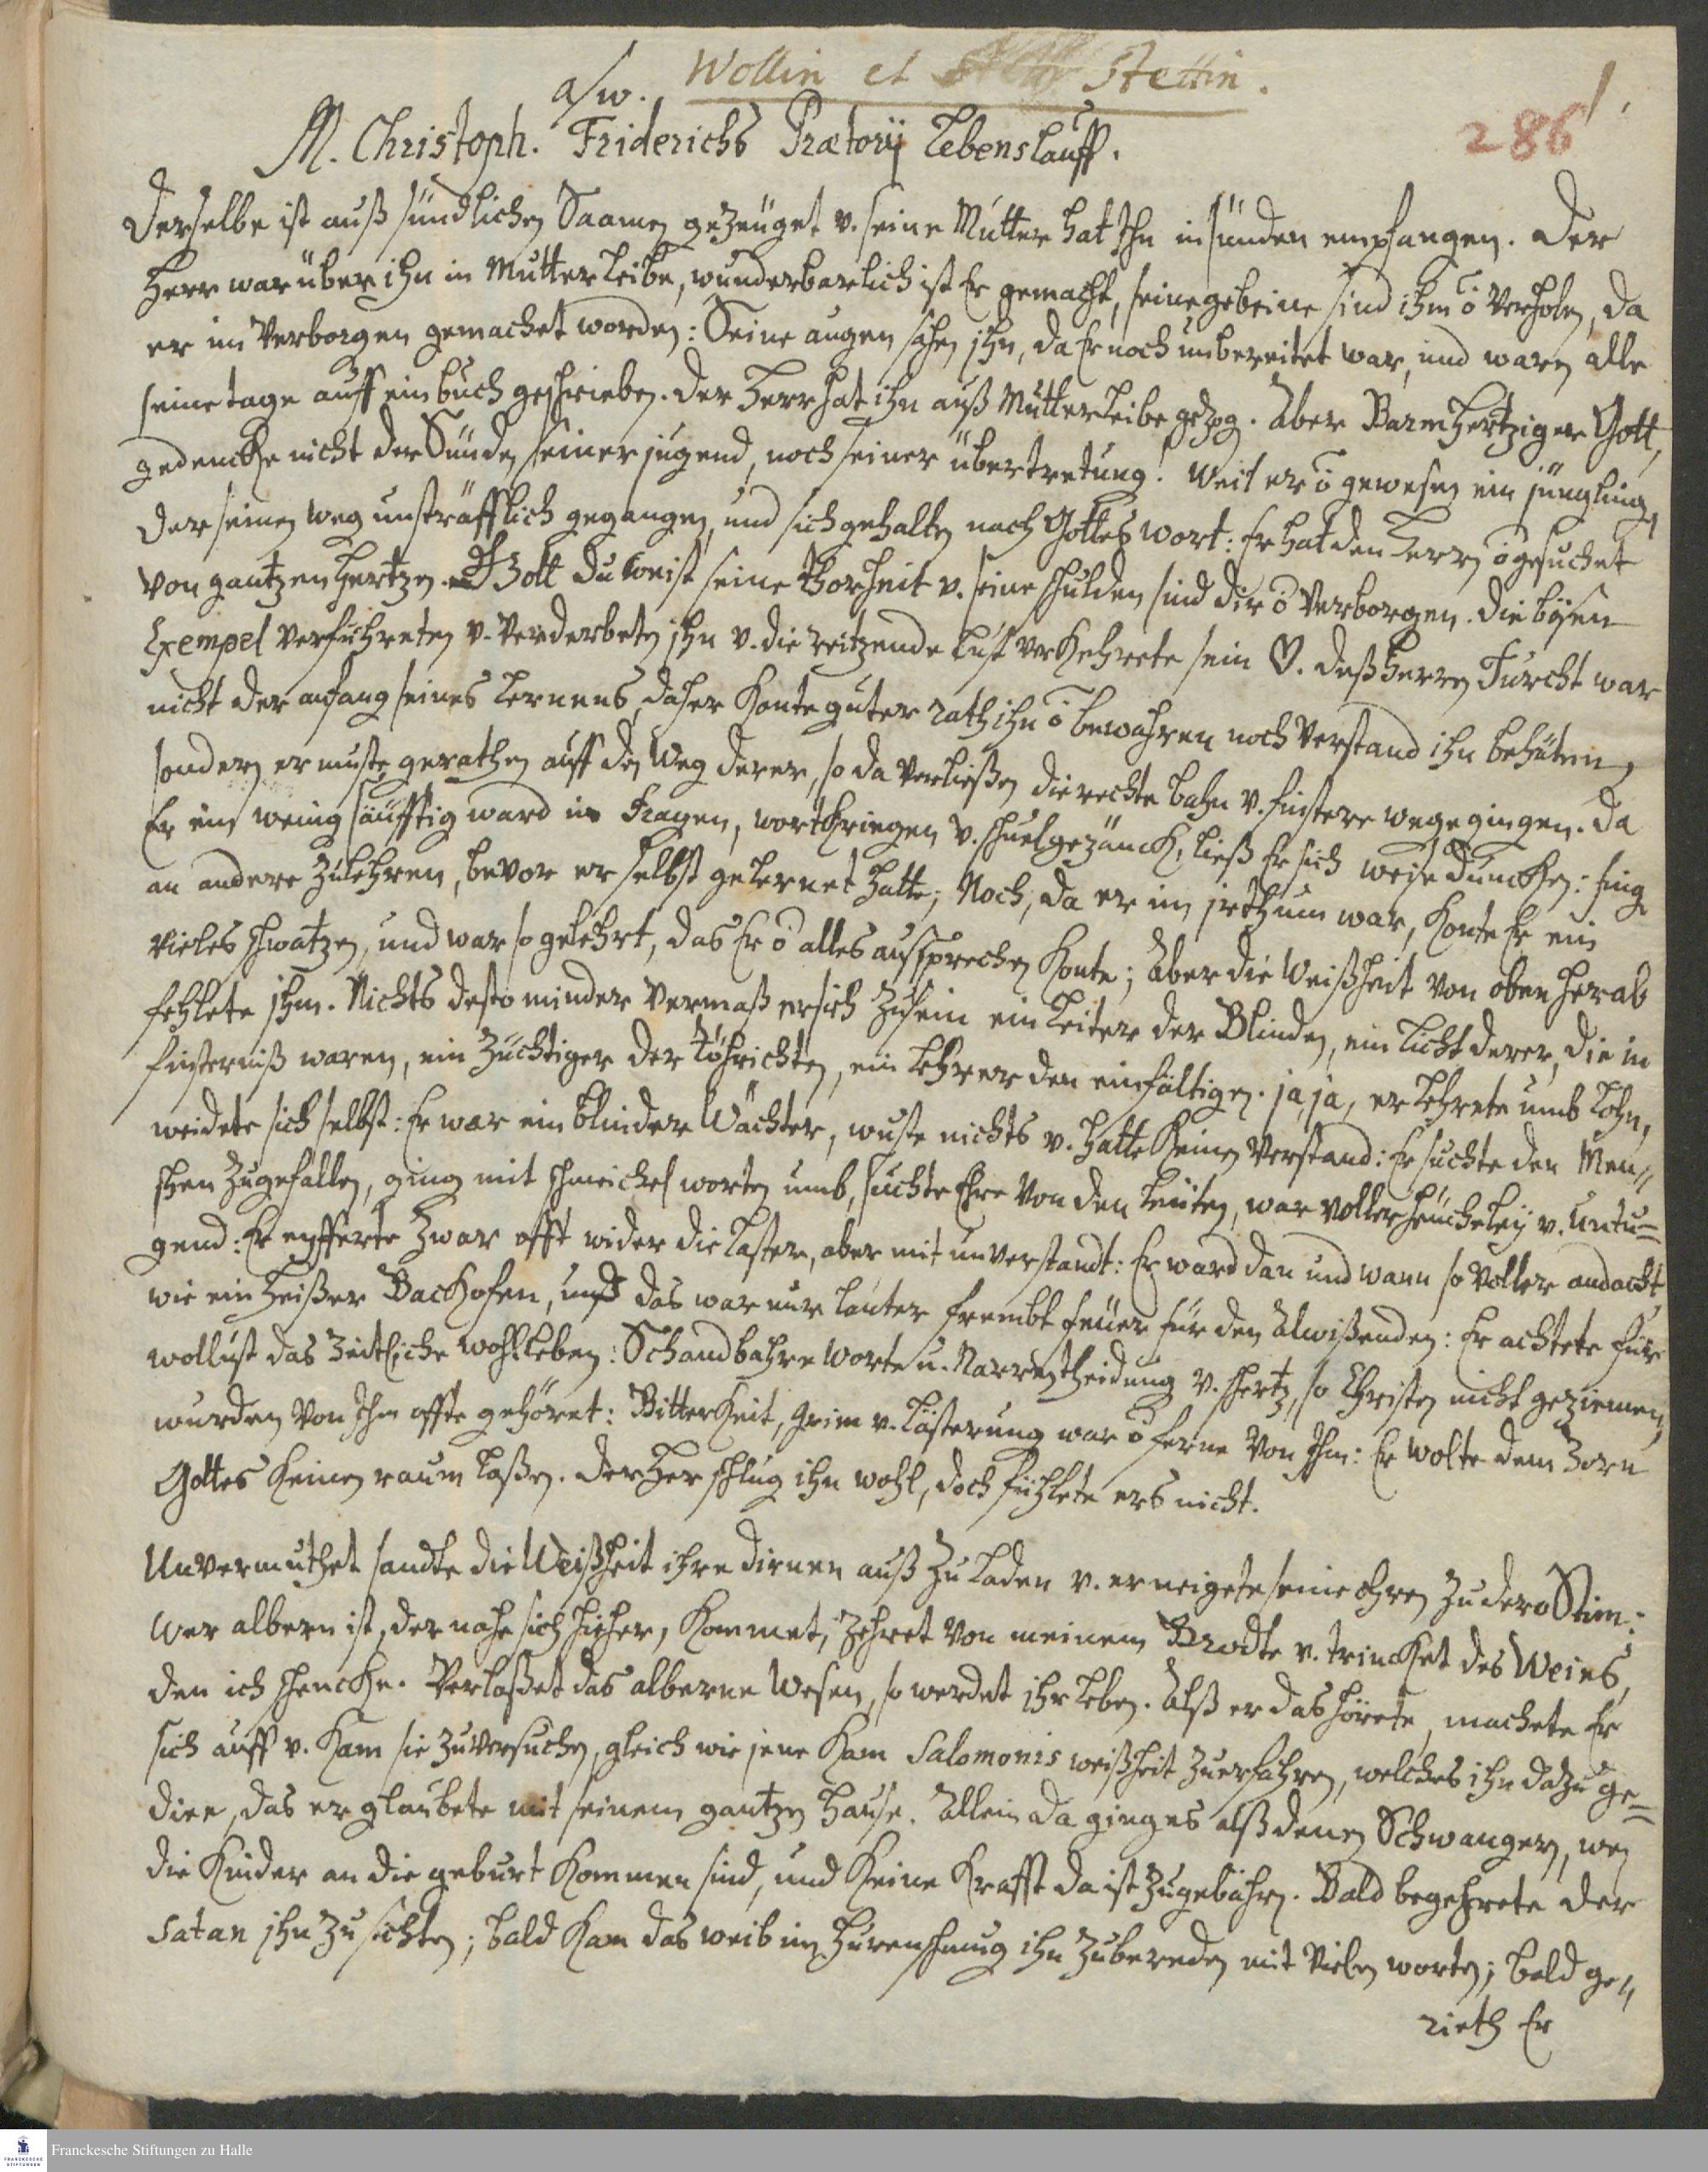 Wollin et Stettin.
a/w.
1.
286
M. Christoph. Friderichs Prætorij Lebenslauff.
Derselbe ist auß sündlichen Saamen gezeüget v. seine Mutter hat Ihn in sünden empfangen. Der
Herr war über ihn in Mutter leibe, wunderbarlich ist Er gemacht, seine gebeine sind ihm õ verholen, da
er im verborgen gemachet worden: Seine augen sahen ihn, da Er noch unbereitet war, und waren alle
seine tage auff ein buch geschrieben. der Herr hat ihn auß Mutterleibe gezog. Aber Barmhertziger Gott,
gedencke nicht der Sünden seiner jugend, noch seiner übertretung! Weil er õ gewesen ein jüngling,
der seinen weg unsträfflich gegangen, und sich gehalten nach Gottes wort: Er hat den Herrn õ gesuchet
von gantzen hertzen. Gott du weist seine thorheit v. seine schulden sind dir õ verborgen. die bösen
Exempel verführeten v. verderbeten ihn v. die reitzende lust verkehrete sein ♡. deß Herren Furcht war
nicht der anfang seines lernens, daher konte guter rath ihn õ bewahren noch verstand ihn behüten,
sondern er muste gerathen auff den weg derer, so da verließen die rechte bahn v. finstere wege gingen. da
Er ein wenig säüfftig ward in Fragen, wortkriegen v. schuelgezänck, ließ Er sich weise düncken: fing
an andere zulehren, bevor er selbst gelernet hatte; Noch, da er im irthum war, konte Er ein
vieles schwatzen, und war so gelehrt, das Er õ alles aussprechen konte; Aber die Weißheit von oben herab
fehlete ihm. Nichts desto minder vermaß er sich zusein ein leiter der Blinden, ein licht derer, die in
finsterniß waren, ein züchtiger der töhrichten, ein lehrer der einfältigen. ja, ja, er lehrete umb lohn,
weidete sich selbst: Er war ein blinder Wächter, wuste nichts v. hatte keinen verstand: Er suchte den Men//
schen zugefallen, ging mit schmeichel worten umb, suchte Ehre von den leüten, war voller heücheleÿ v. untu=
gend: Er eyfferte zwar offt wider die laster, aber mit unverstandt: Er ward dan und wann so voller andacht
wie ein heißer Backofen, und das war nur lauter frembt feüer für den Alwißenden: Er achtete für
wollust das Zeitliche wohlleben: Schandbahre worte u. Narrentheidung v. schertz, so Christen nicht geziemen,
wurden von Ihm offte gehöret: Bitterkeit, grim v. lästerung war õ ferne von Ihm: Er wolte dem Zorn
Gottes keinen raum laßen. der Herr schlug ihn wohl, doch fühlete ers nicht.
Unvermuthet sandte die Weißheit ihre dirnen auß zu laden v. er neigete seine ohren zu dero Stim:
Wer albern ist, der nahe sich hieher, kommet, zehret von meinem Brodte v. trincket des Weins,
den ich schencke. Verlaßet das alberne wesen, so werdet ihr leben. Alß er das hörete, machete Er
sich auff v. kam sie zuversuchen, gleich wie jene kam Salomonis weißheit zuerfahren, welches ihn dazu ge=
dien, das er glaubete mit seinem gantzen hause. Allein da ging es alß denen Schwangern, wen
die kinder an die geburt kommen sind, und keine krafft da ist zugebähren. Bald begehrete der
Satan ihn zu sichten; bald kam das weib im hurenschmug ihn zubereden mit vielen worten; bald ge//
rieth Er
Franckesche Stiftungen zu Halle